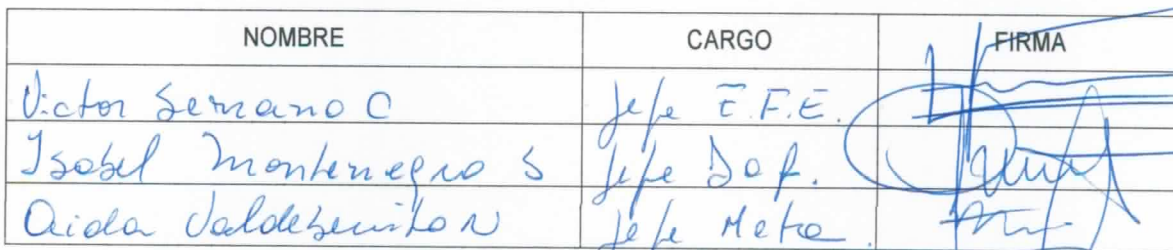 NOMBRE CARGO FIRMA
Victor Serrano C Jefe E.F.E.
Isabel Montenegro S Jefe
Aida Valdebenito N Jefe